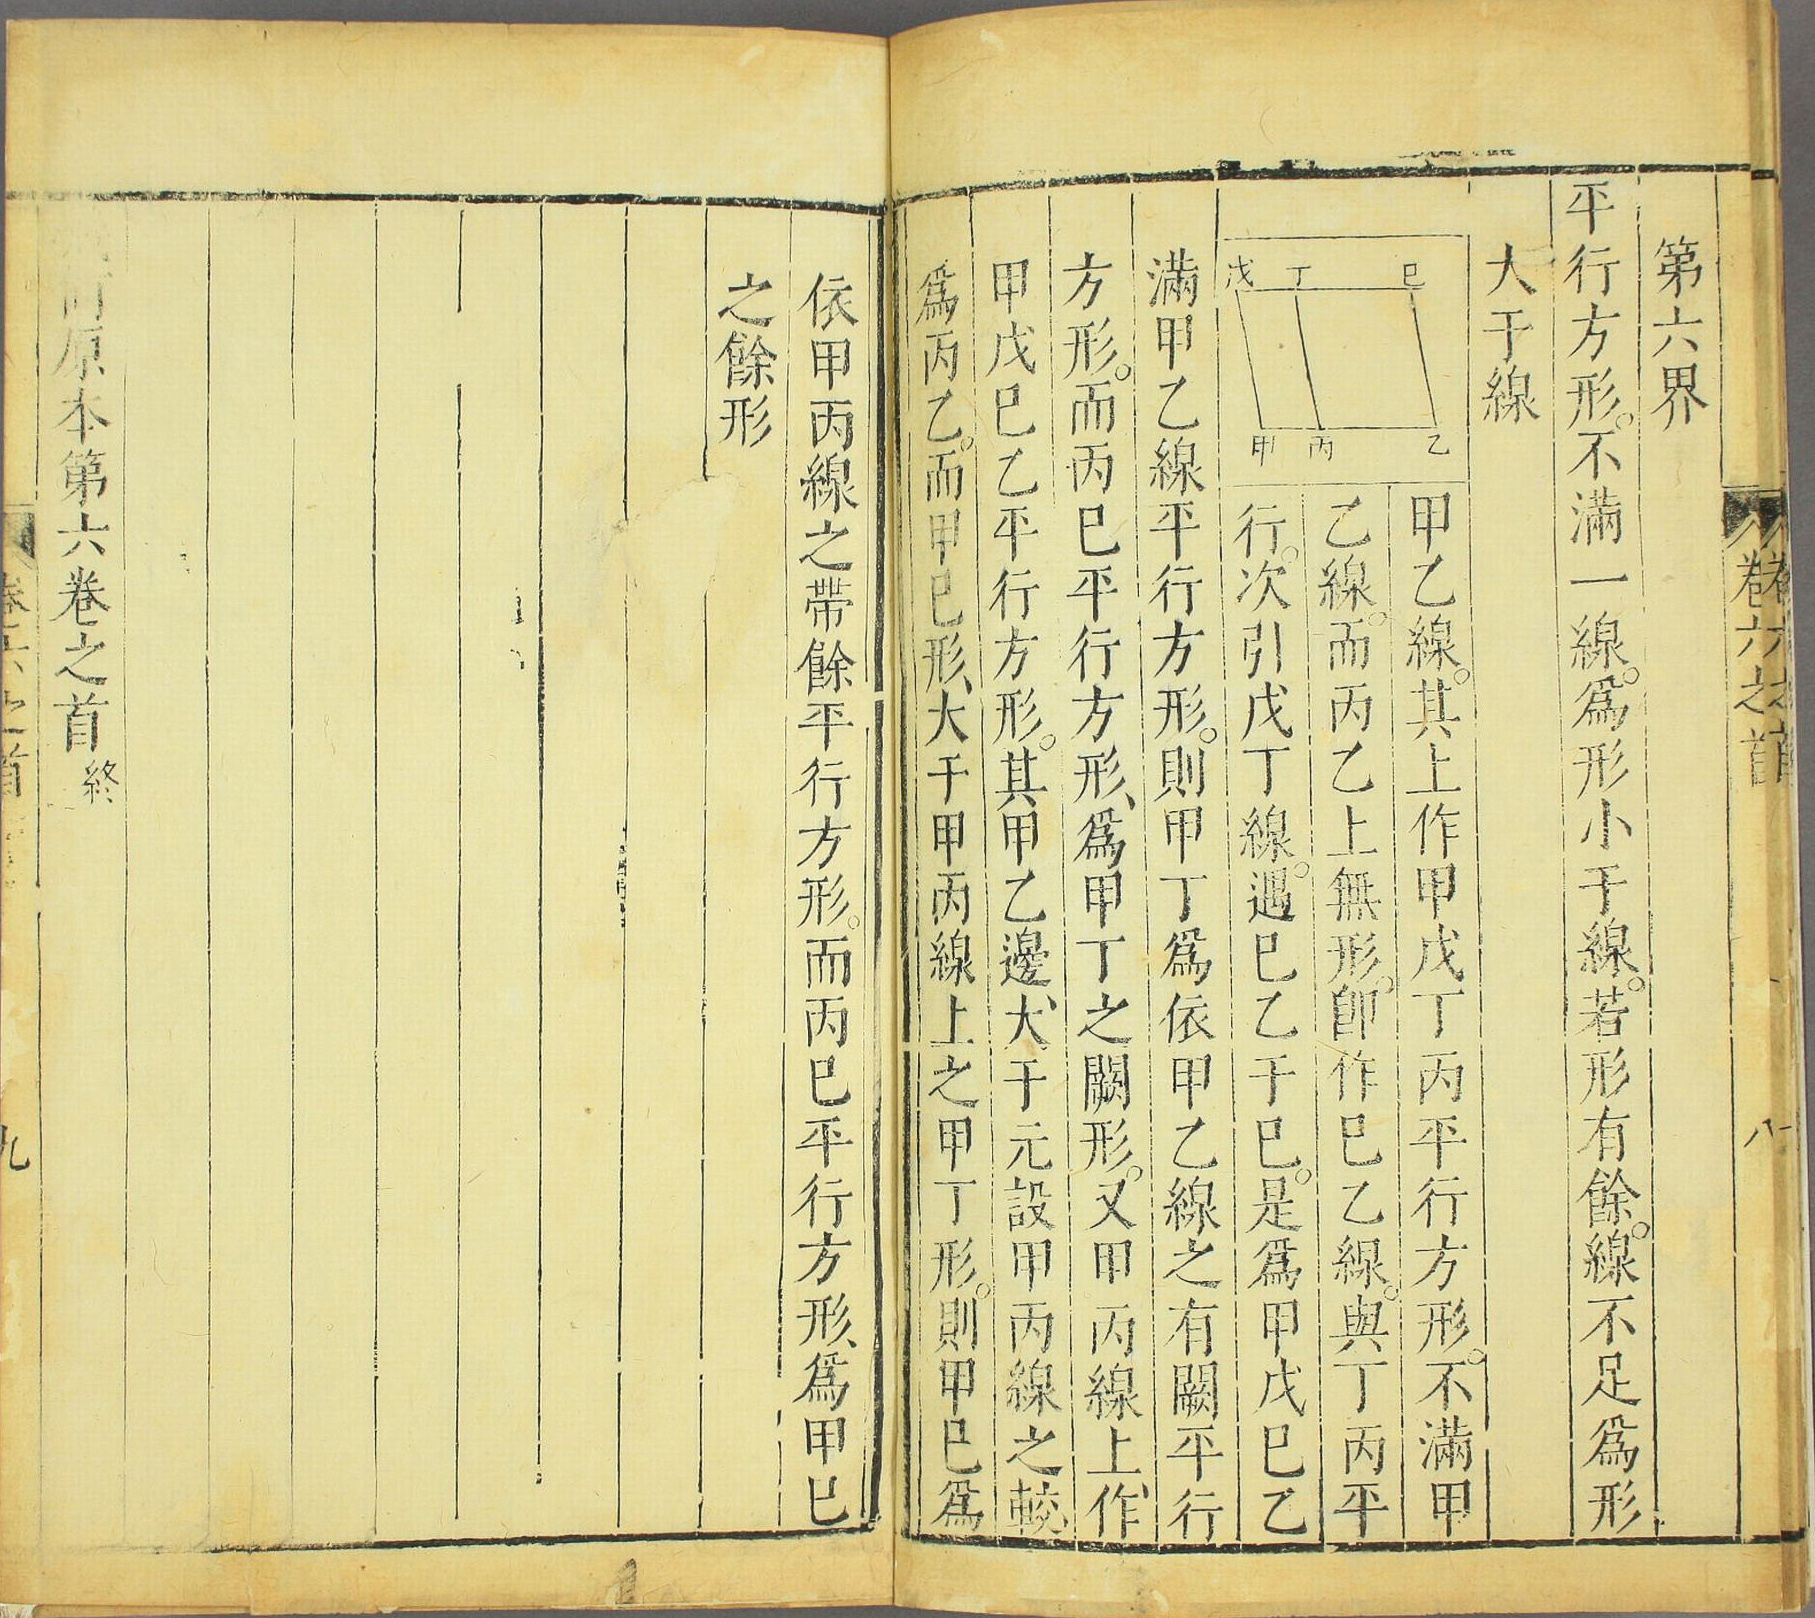 第六界
平行方形。不滿一線。爲形小于線。若形有餘。線不足爲形
大于線
戊 丁 巳
甲 丙 乙
甲乙線。其上作甲戊丁丙平行方形。不滿甲
乙線。而丙乙上無形。卽作巳乙線。與丁丙平
行。次引戊丁線。遇巳乙于巳。是爲甲戊巳乙
滿甲乙線平行方形。則甲丁爲依甲乙線之有闕平行
方形。而丙巳平行方形、爲甲丁之闕形。又甲丙線上、作
甲戊巳乙平行方形。其甲乙邊、大于元設甲丙線之較
爲丙乙。而甲巳形、大于甲丙線上之甲丁形。則甲巳爲
卷六之首
八
依甲丙線之帶餘平行方形。而丙巳平行方形、爲甲巳
之餘形
原本第六卷之首終
九